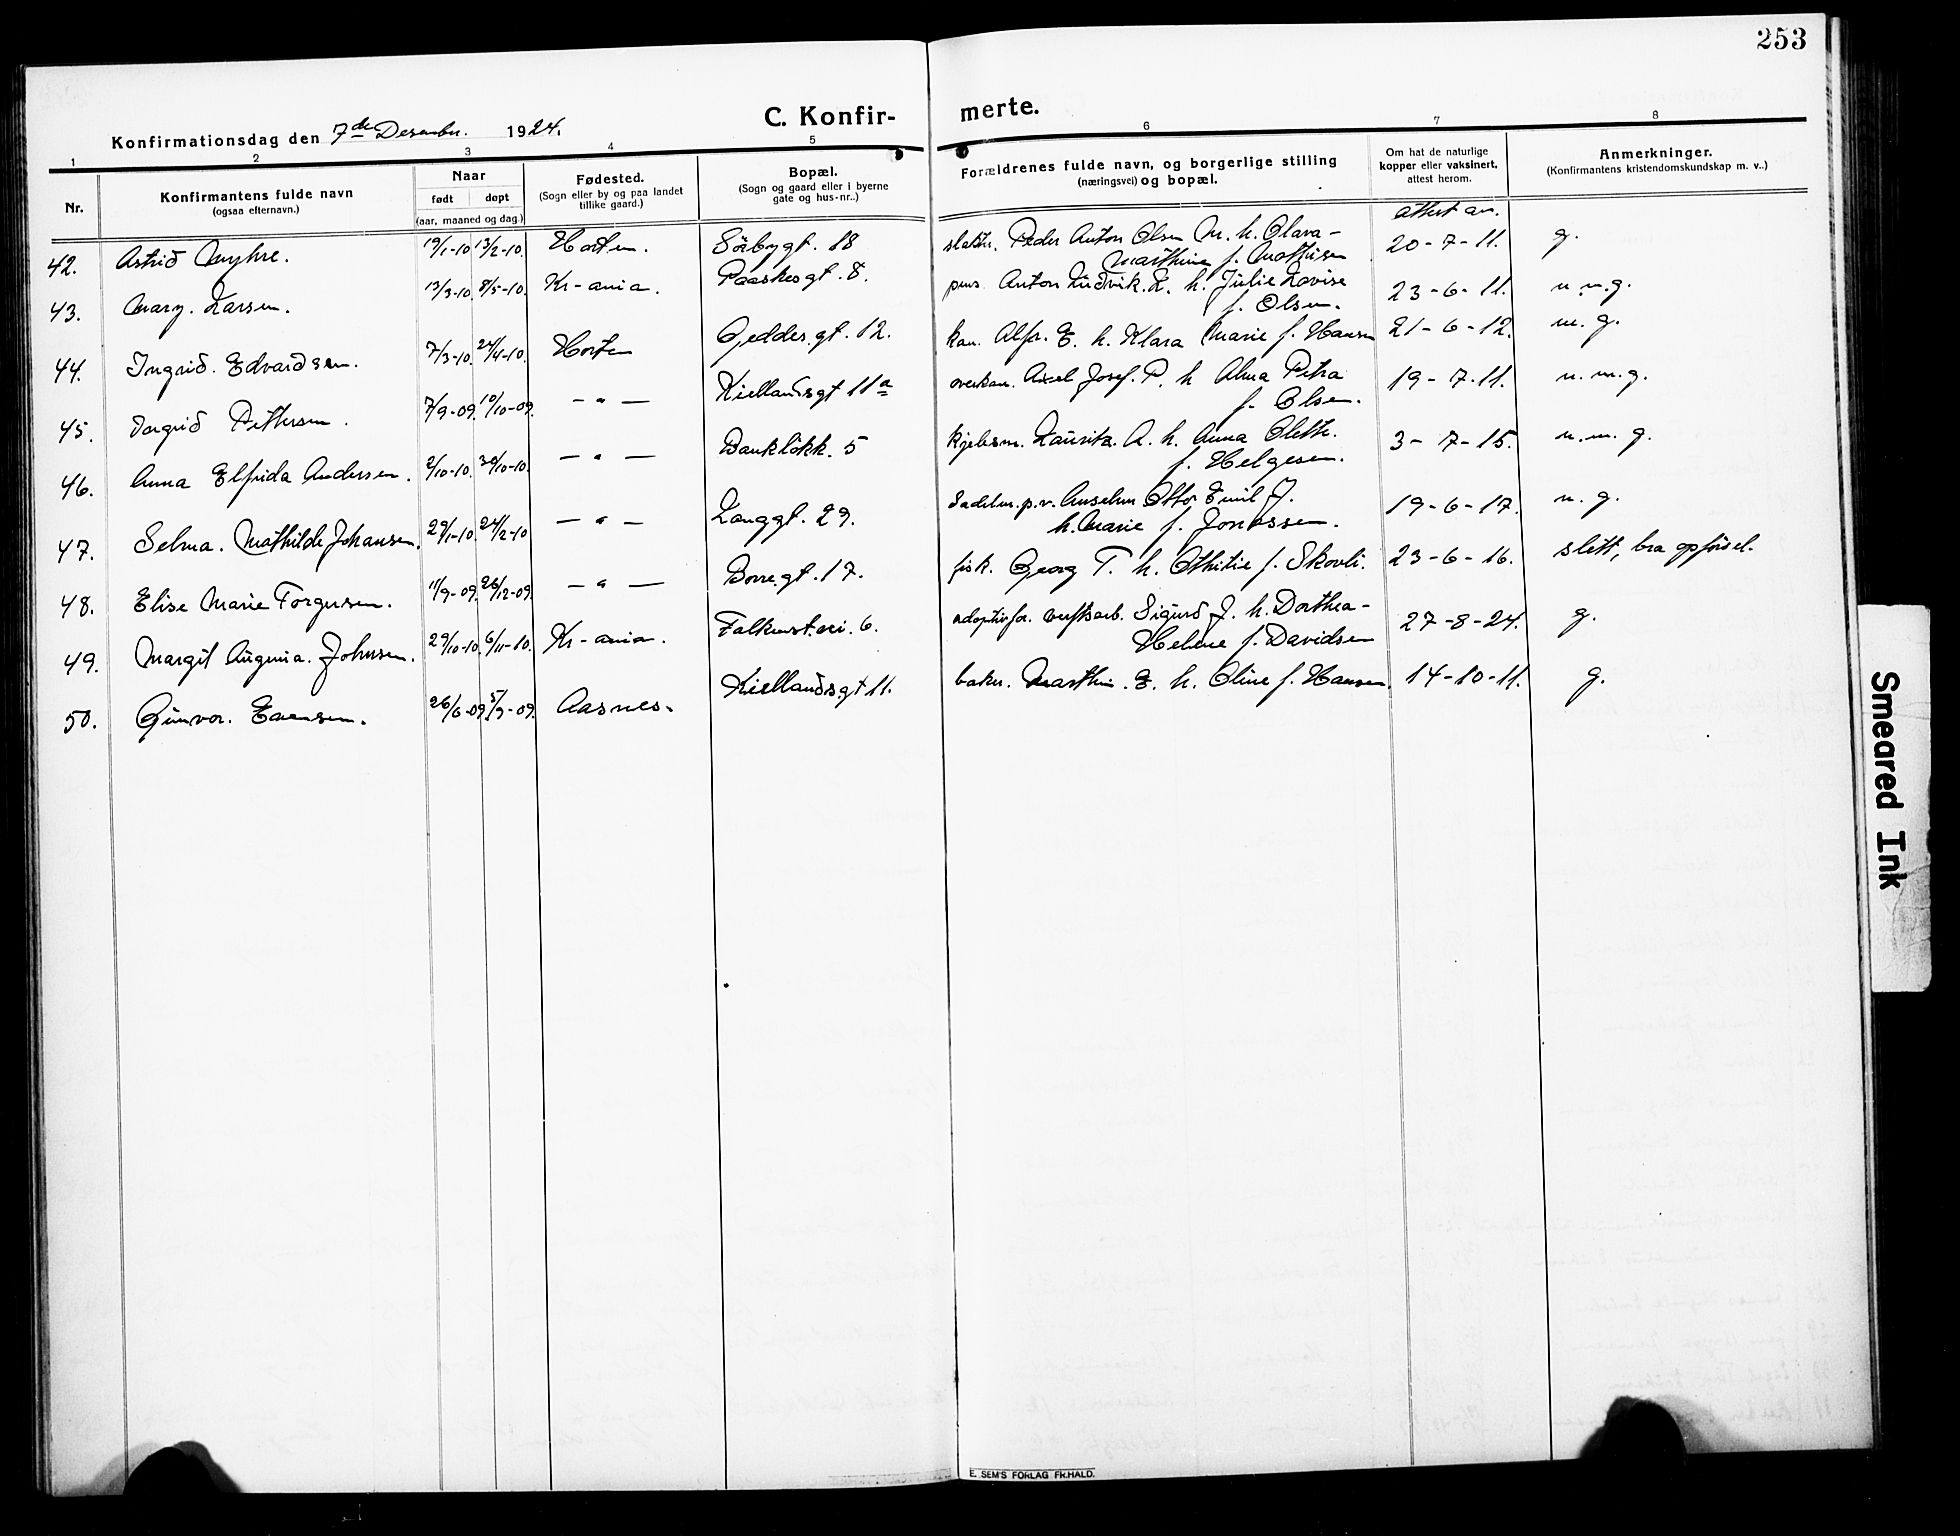 253
C. Konfir-
merte.
Konfirmationsdag den 7de Desember. 1924.
1 2 3 4 5 6 7 8
Nr.
Konfirmantens fulde navn
(ogsaa efternavn.)
Naar
født døpt
(aar, maaned og dag.)
Fødested.
(Sogn eller by og paa landet
tillike gaard.)
Bopæl.
(Sogn og gaard eller i byerne
gate og hus-nr..)
Forældrenes fulde navn, og borgerlige stilling
(næringsvei) og bopæl.
Om hat de naturlige
kopper eller vaksinert,
attest herom.
Anmerkninger.
(Konfirmantens kristendomskundskap m. v..)
attest av.
42. Astrid Myhre. 19/1-10 13/2-10. Horten. Söbygt. 18 Peder Anton Olsen M. h. Olava- 20-7-11. g.
Marthine f. Mathisen
43. Mary. Larsen. 13/3-10. 8/5-10. Kr-ania. Paaskesgt. 8. pens. Anton Ludvik. L. h. Julie Lovise 23-6-11. n.m.g.
f. Olsen.
44. Ingrid. Edvardsen. 7/3-10. 24/4-10. Horten Geddes.gt. 12. kan. Alfr. E. h. Klara Marie f. Hansen 21-6-12. m. g.
45. Ingrid Pettersen. 7/9-09. 10/10-09. -"- Kiellandsgt 11a overkan. Axel Josef. P. h Alma Petra 19-7-11. n. m. g.
f. Olsen.
46. Anna Elfrida Andersen. 2/10-10. 30/10-10. -"- Banklökk. 5 kjelesm. Lauritz. A. h. Anna Oleth. 3-7-15. n. m. g.
f. Helgesen.
47. Selma. Mathilde Johansen. 29/1-10. 24/2-10 -"- Langgt. 29. Sadelm. p.v. Anselm Otto Emil J. 19-6-17. n. g.
h. Marie f. Jonassen.
48. Elise Marie Torgersen. 11/9-09. 26/12-09. -"- Borre.gt. 17. fisk. Georg T. h. Othilie f. Skovli. 23-6-16. slett, bra opførsel.
49. Margit Augenia. Johnsen. 29/10-10. 6/11-10. Kr-ania. Falkenst.vei. 6. adoptivfor. verftsarb. Sigurd J. h. Dorthea- 27-8-24. g.
Helene f. Davidsen
50. Gunvor. Evensen. 26/6-09. 5/9-09. Aasnes. Kiellandsgt 11. baker. Marthin. E. h. Oline f. Hansen. 14-10-11. g.
E. SEM'S FORLAG FR.HALD.
Smeared Ink